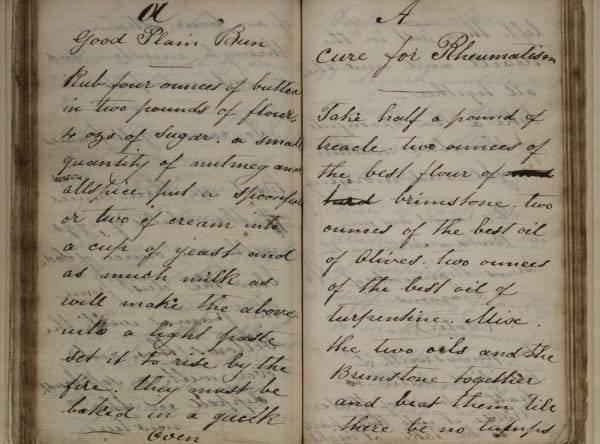 a
Good Plain Bun
Rub four ounces of butter
in two pounds of flour,
4 ozs of Sugar. a small
quantity of nutmeg and
allspice put a spoonful
or two of cream into
a cup of yeast and
as much milk as
will make the above
into a light paste
set it to rise by the
fire. they must be
baked in a quick
Oven
A
Cure for Rheumatism
Take half a pound of
treacle. two ounces of
the best flour of
brimstone. two
ounces of the best oil
of Olives. two ounces
of the best oil of
turpentine. Mix.
the two oils and the
Brimstone together
and beat them till
there be no lumps